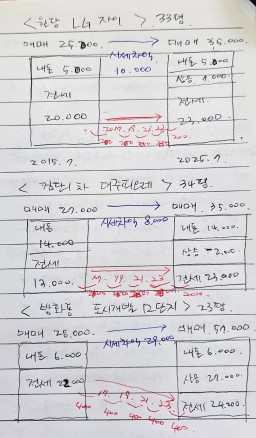 <원당 LG 자이> 33평
매매 25.000 → 매매 35.000
시세차익 10.000
내돈 5.000
내돈 5.000
상승
전세
전세
20.000
23.000
2015.7. 2025.7.
<검단1차 대주피오레> 34평
매매 27.000 매매 35.000
시세차익 8.000
내돈
내돈 14.000
14.000
상승
전세
13.000
전세 23.000
<방화동 도시개발 12단지> 23평
매매 28.000 매매 57.000
시세차익 29.000
내돈 6.000
내돈 6.000
상승 27.000
전세 22000
전세 24.000
17 19 21 23
400 400 400 400 400